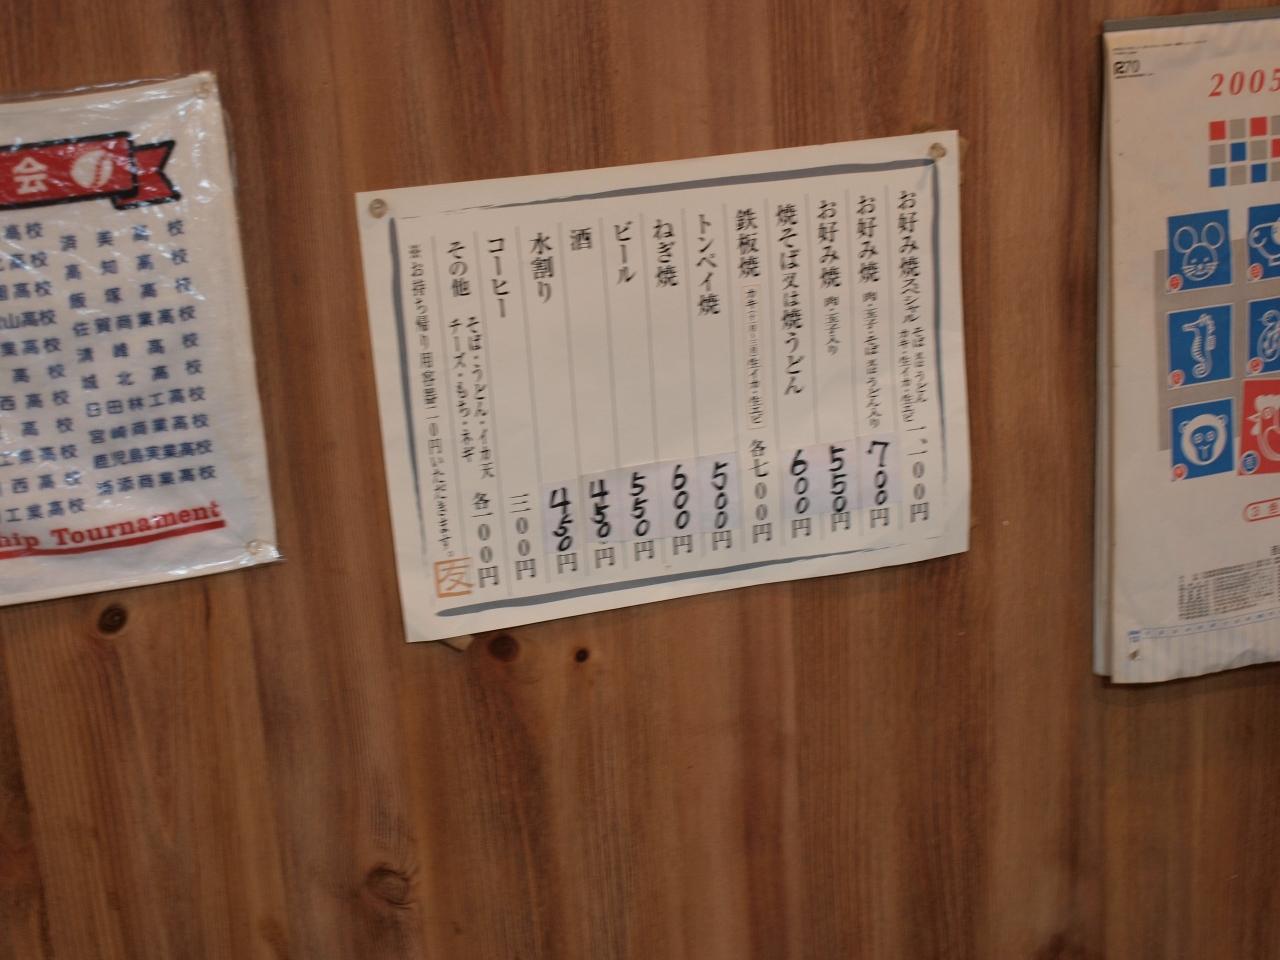 会
高校
済美高校
高知高校
飯塚高校
佐賀商業高校
清峰高校
城北高校
日田林工高校
宮崎商業高校
鹿児島実業高校
浦添商業高校
工業高校
西高校
Tournament
お好み焼スペシャル そば又はうどん カキ・生イカ・生エビ 一、一〇〇円
お好み焼 肉・玉子・そば又はうどん入り 700円
お好み焼 肉・玉子入り 550円
焼そば又は焼うどん 600円
鉄板焼 生イカ・生エビ 各七〇〇円
トンペイ焼 500円
ねぎ焼 600円
ビール 550円
酒 450円
水割り 450円
コーヒー 三〇〇円
その他 そば・うどん・イカ天 チーズ・もち・ネギ 各一〇〇円
※お持ち帰り用容器二〇円いただきます。
友
2005